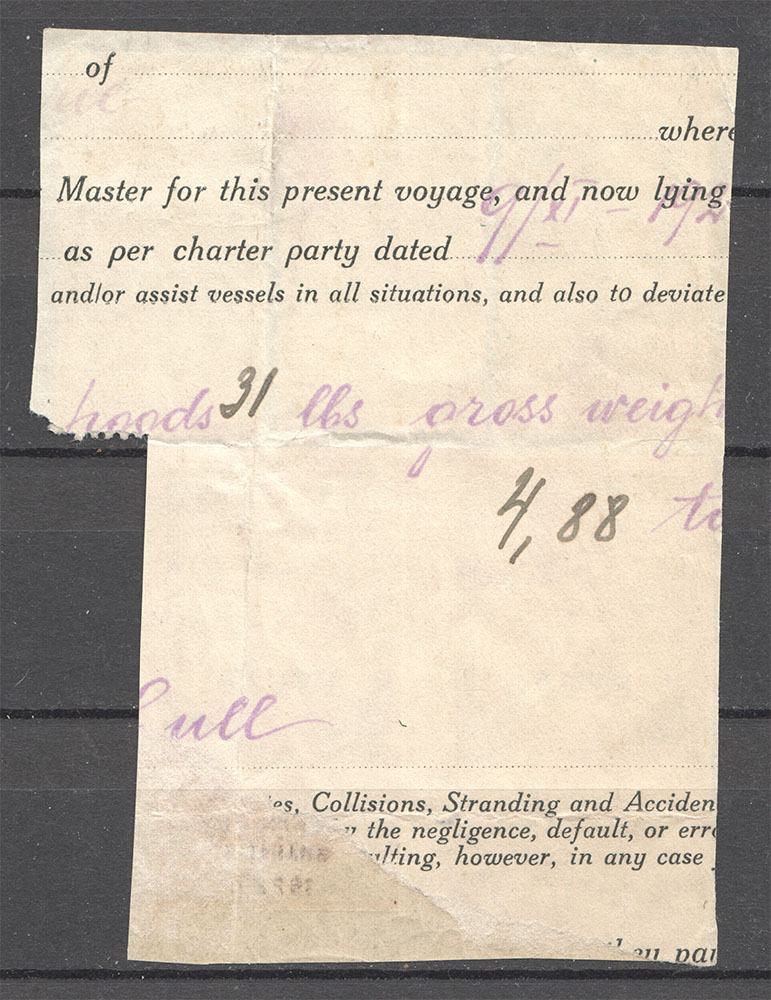 of
where
Master for this present voyage, and now lying
as per charter party dated 9/XI - 192
and/or assist vessels in all situations, and also to deviate
31 lbs gross weigh
4,88 to
ull
es, Collisions, Stranding and Acciden
the negligence, default, or erro
ulting, however, in any case